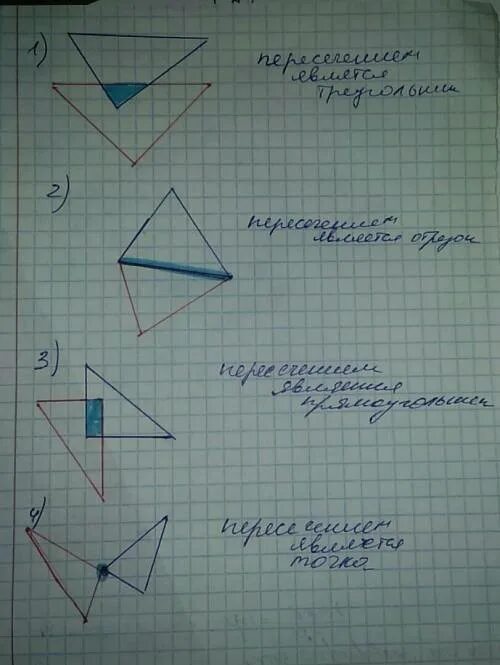 1)
пересечением
является
треугольник
2)
пересечением
является отрезок
3)
пересечением
является
прямоугольник
4)
пересечением
является
точка